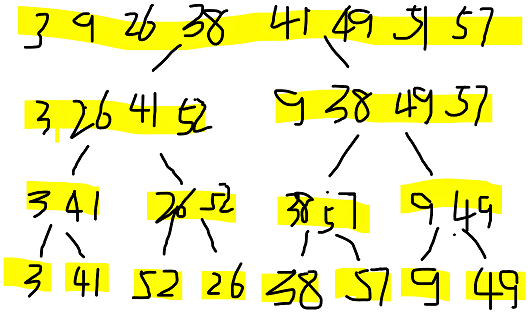 3 9 26 38 41 49 51 57
3 26 41 52 9 38 49 57
3 41 26 52 38 57 9 49
3 41 52 26 38 57 9 49